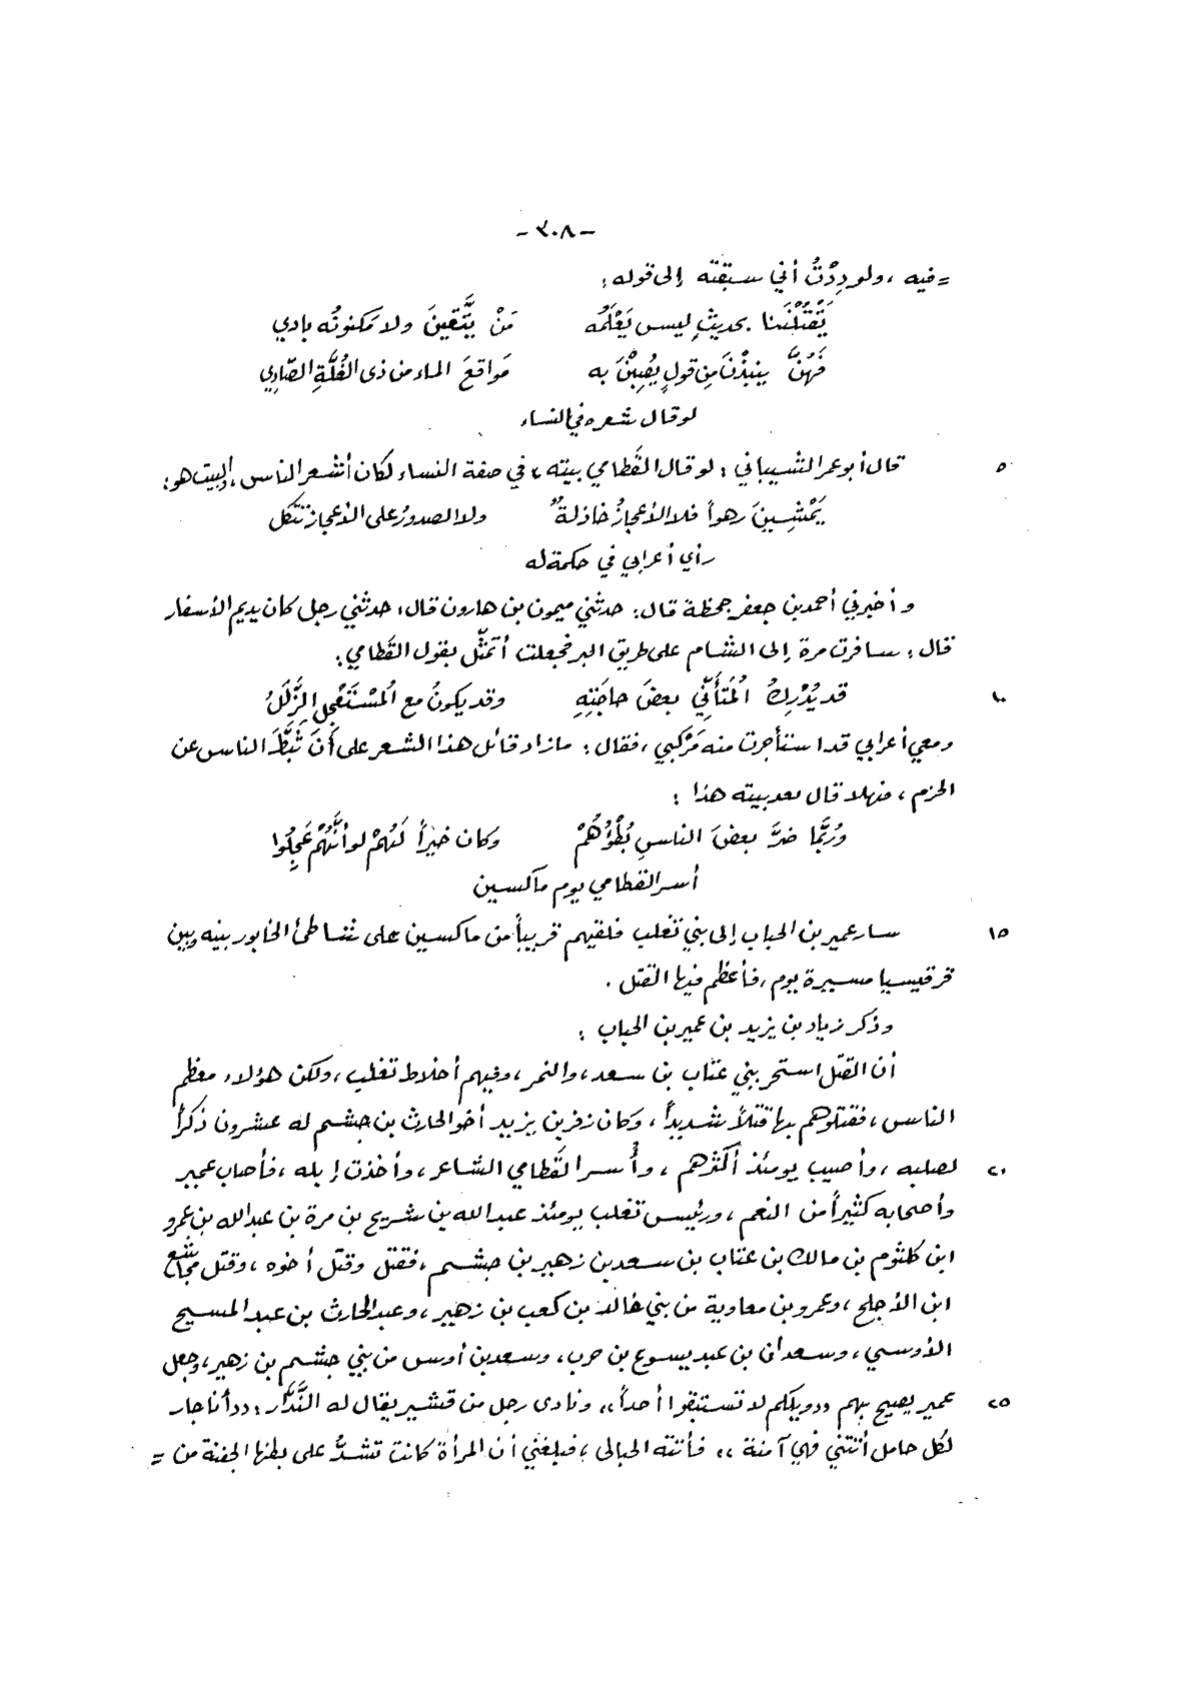 -٣٠٨-
= فيه ، ولو دِدْتُ أني سبقته إلى قوله :
يَقْتُلْنَنا بحديثٍ ليس يَعْلَمُه مَنْ يَتَّقينَ ولا مكنونُه بادي
فَهُنَّ ينبِذْنَ مِن قولٍ يُصِبْنَ به مَواقعَ الماء من ذى الغُلَّةِ الصّادِي
لو قال شعره في النساء
٥ قال أبو عمر الشيباني : لو قال القَطامي بيته ، في صفة النساء لكان أشعر الناس ، والبيت هو :
يَمْشِينَ رهواً فلا الأعجازُ خاذلةٌ ولا الصدورُ على الأعجاز تتّكل
رأي أعرابي في حكمة له
وأخبرني أحمد بن جعفر جحظة قال : حدثني ميمون بن هارون قال : حدثني رجل كان يديم الأسفار
قال : سافرت مرة إلى الشام على طريق البر فجعلت أتمثّل بقول القَطامي :
١٠ قد يُدْرِكُ المُتَأَنِّي بعضَ حاجَتِهِ وقد يكونُ مع المُسْتَعْجِلِ الزَّلَلُ
ومعي أعرابي قد استأجرت منه مَرْكبي ، فقال : ما زاد قائل هذا الشعر على أنَ ثَبَّطَ الناس عن
الحزم ، فهلا قال بعد بيته هذا :
ورُبَّما ضرَّ بعضَ الناسِ بُطْؤُهُمْ وكان خيْراً لَهُمْ لو أنَّهُمْ عَجِلُوا
أسر القطامي يوم ماكسين
١٥ سار عمير بن الحباب إلى بني تغلب فلقيهم قريباً من ماكسين على شاطئ الخابور بينه وبين
قرقيسيا مسيرة يوم ، فأعظم فيها القتل .
وذكر زياد بن يزيد بن عمير بن الحباب :
أن القتل استحر ببني عتّاب بن سعد ، والنمر ، وفيهم أخلاط تغلب ، ولكن هؤلاء معظم
الناس ، فقتلوهم بها قتلاً شديداً ، وكان زفر بن يزيد أخو الحارث بن جشم له عشرون ذكراً
٢٠ لصلبه ، وأصيب يومئذ أكثرهم ، وأُسر القَطامي الشاعر ، وأخذت إبله ، فأصاب عمير
وأصحابه كثيراً من النعم ، ورئيس تغلب يومئذ عبد الله بن شريح بن مرة بن عبد الله بن عمرو
ابن كلثوم بن مالك بن عتاب بن سعد بن زهير بن جشم ، فقتل وقتل أخوه ، وقتل مجاشع
ابن الأجلح ، وعمرو بن معاوية من بني خالد بن كعب بن زهير ، وعبد الحارث بن عبد المسيح
الأوسي ، وسعدان بن عبد يسوع بن حرب ، وسعد بن أوس من بني جشم بن زهير ، وجعل
٢٥ عمير يصيح بهم ،، ويلكم لا تستبقوا أحداً ،، ونادى رجل من قشير يقال له النَّدَّار : ،، أنا جار
لكل حامل أتتني فهي آمنة ،، فأتته الحبالى ، فبلغني أن المرأة كانت تشدُّ على بطنها الجفنة من =